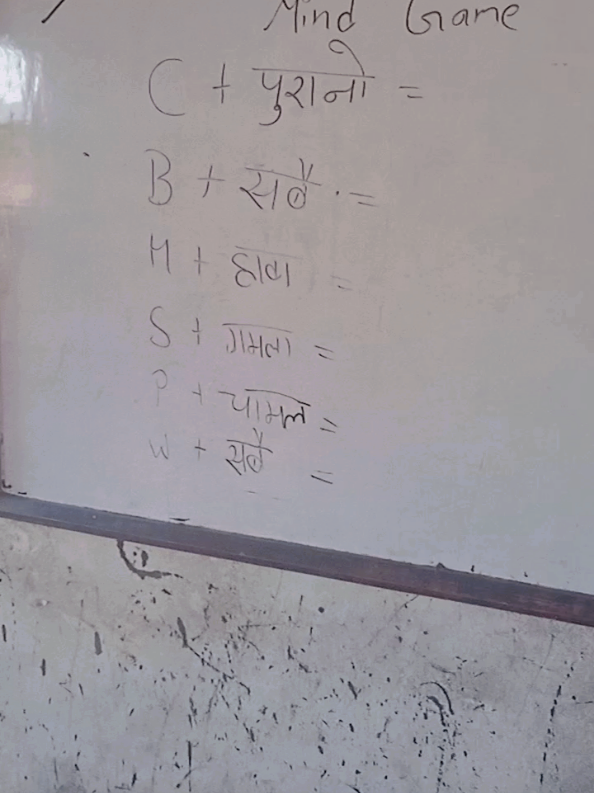 Mind Game
C + पुरानो =
B + सबै . =
H + हावा =
S + गमला =
P + चामल =
W + सबै =